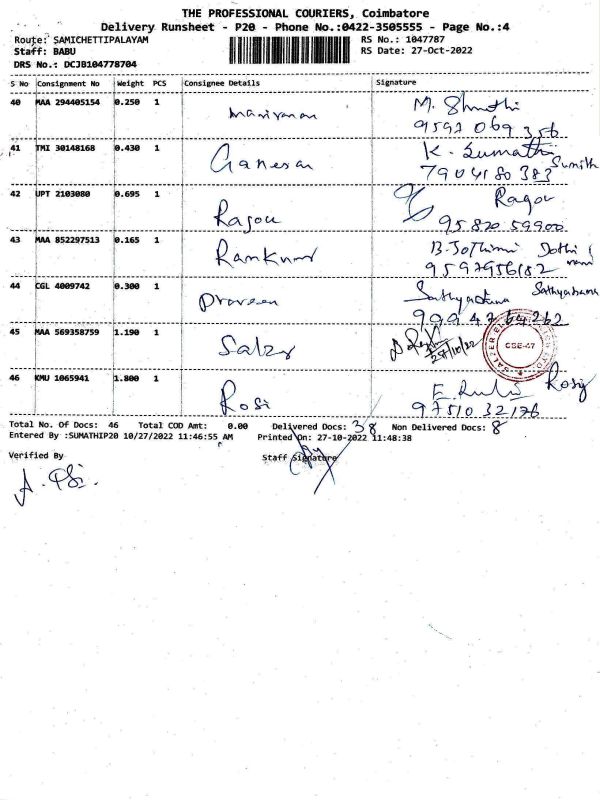 THE PROFESSIONAL COURIERS, Coimbatore
Delivery Runsheet - P20 - Phone No.:0422-3505555 - Page No.:4
Route: SAMICHETTIPALAYAM RS No.: 1047787
Staff: BABU RS Date: 27-Oct-2022
DRS No.: DCJB104778704
S No Consignment No Weight PCS Consignee Details Signature
40 MAA 294405154 0.250 1 Manivanan M. Shruthi
9592 069 356
41 TMI 30148168 0.430 1 Ganesan K. Sumathi
7904180 383
42 UPT 2103080 0.695 1 Ragou Ragou
95820 59900
43 MAA 852297513 0.165 1 Ramkumar B. Jothimani
9597956182
44 CGL 4009742 0.300 1 Praveen Sathyabama Sathyabama
99947 64262
45 MAA 569358759 1.190 1 Salzer
CBE-47
46 KMU 1065941 1.800 1 Rosi Rosy
97510 32176
Total No. Of Docs: 46 Total COD Amt: 0.00 Delivered Docs: 38 Non Delivered Docs: 8
Entered By :SUMATHIP20 10/27/2022 11:46:55 AM Printed On: 27-10-2022 11:48:38
Verified By Staff Signature